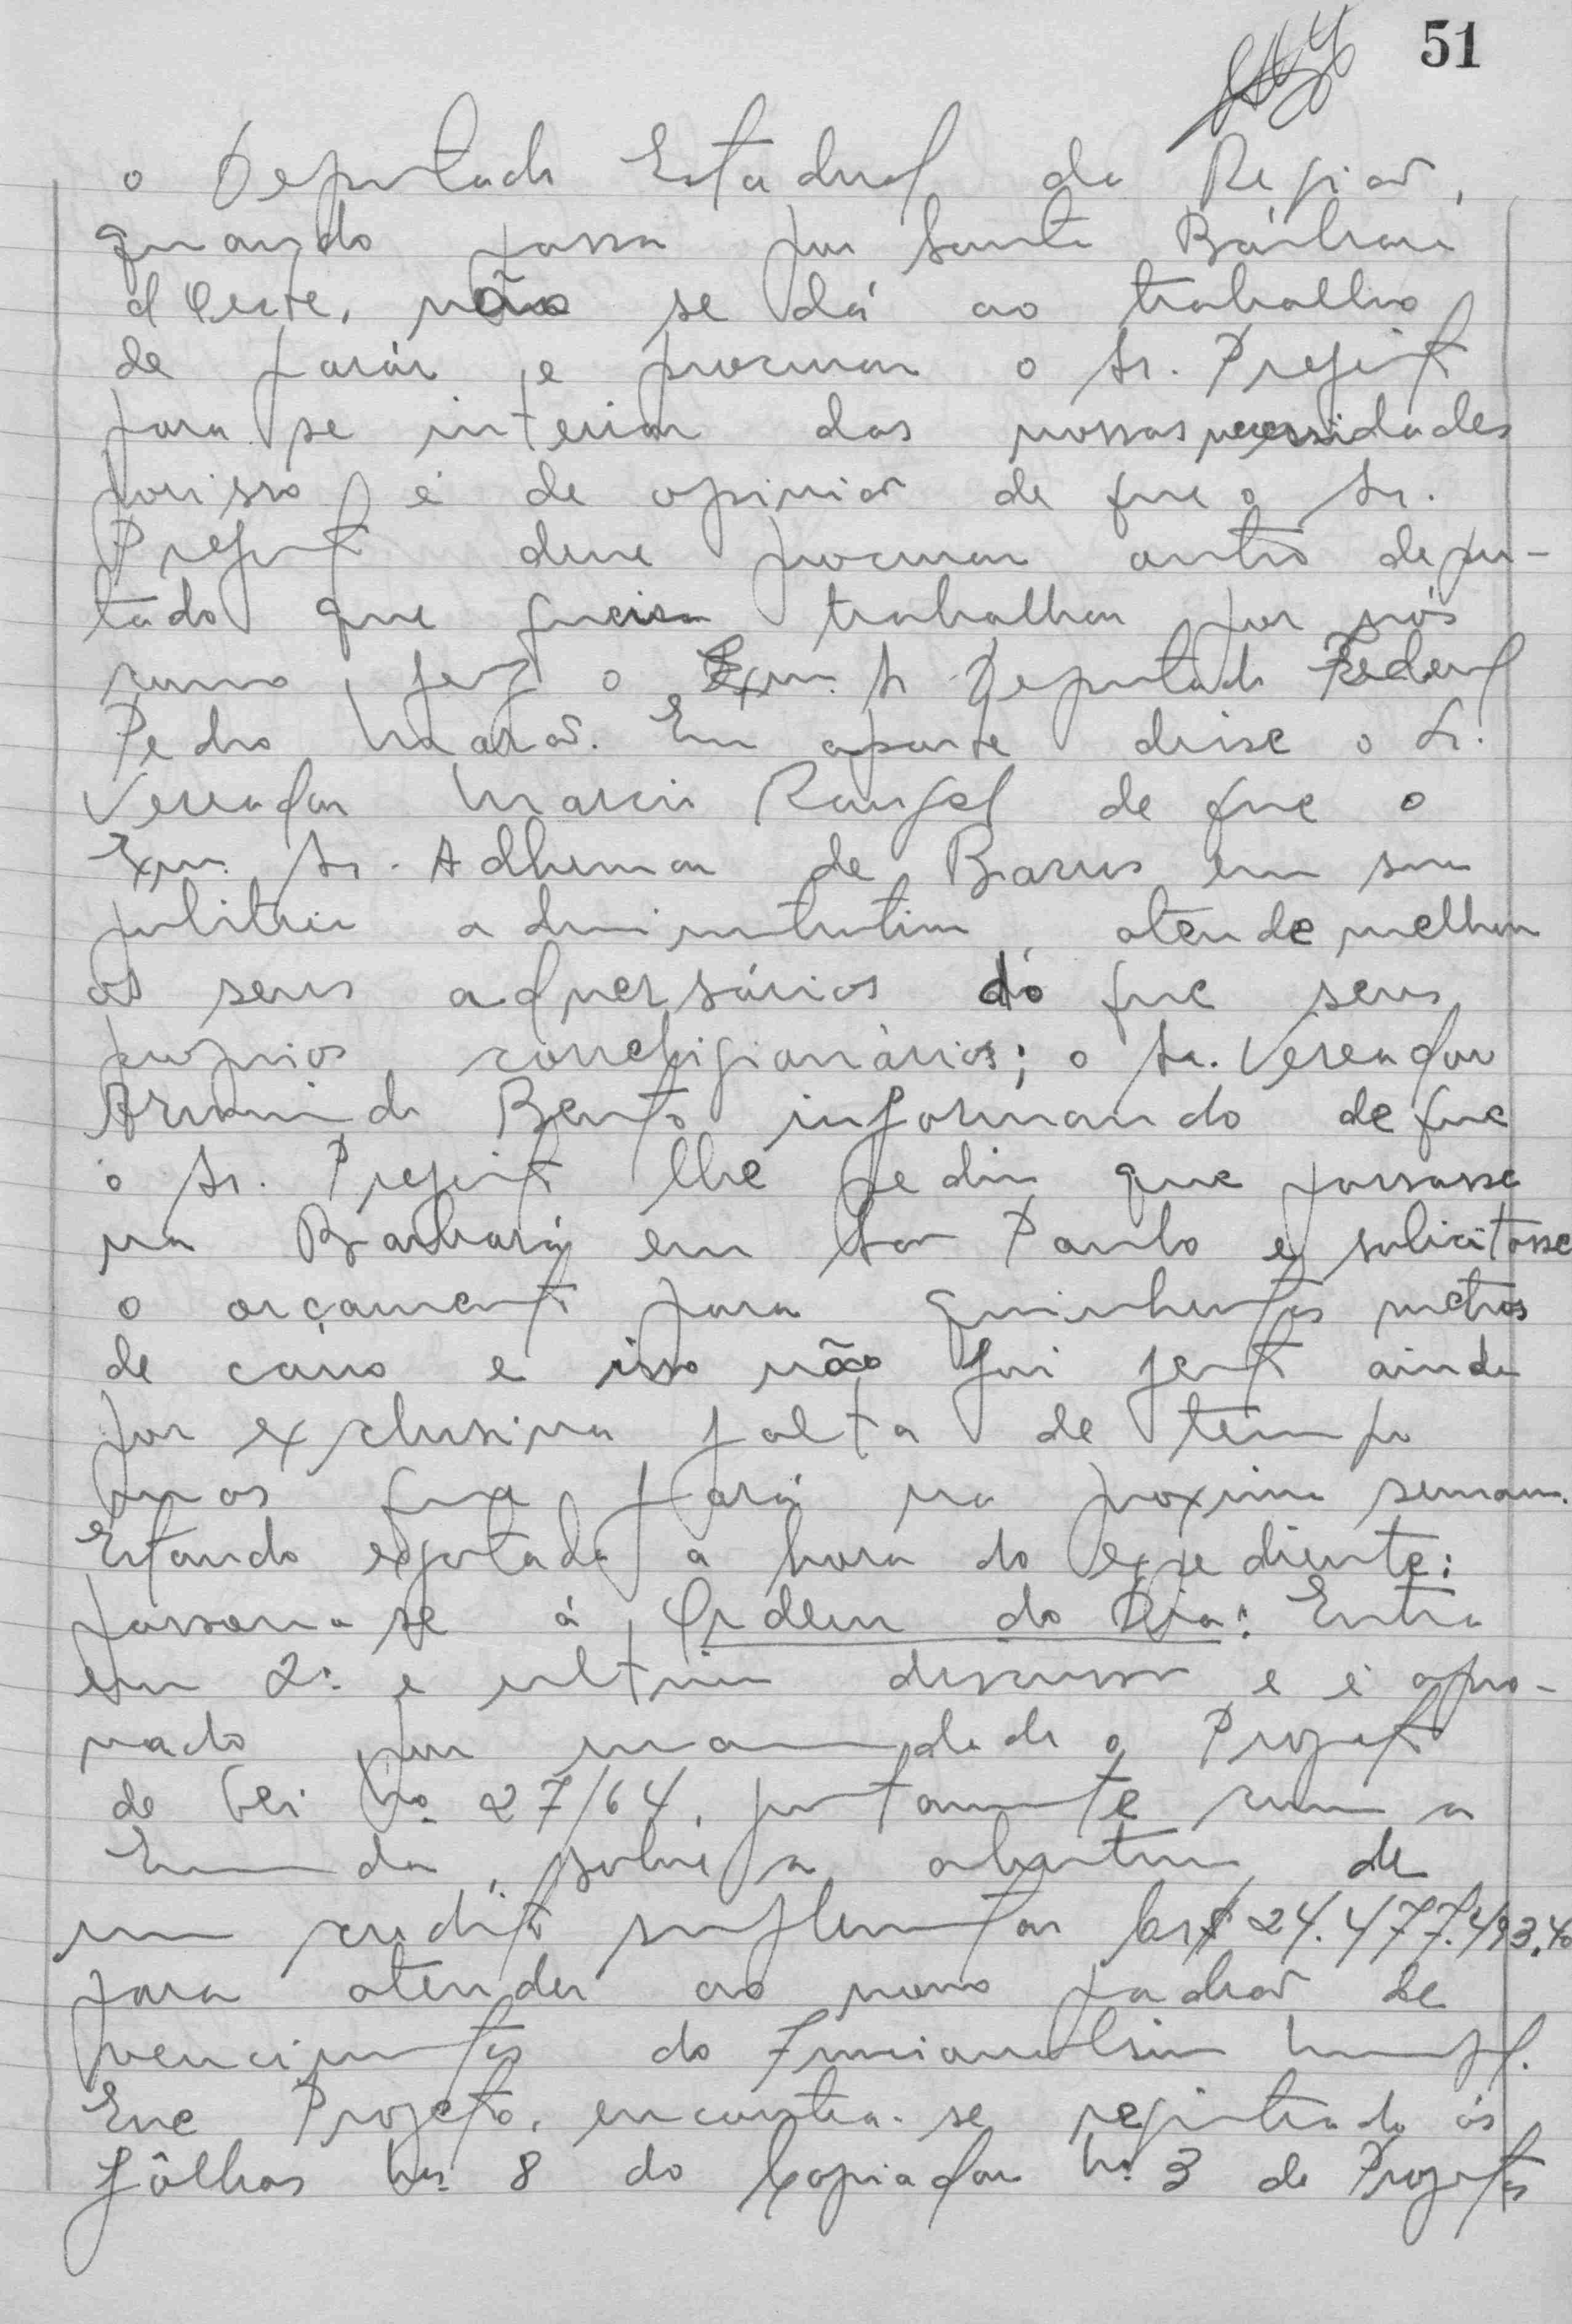 51
o Deputado Estadual da Região,
quando passa por Santa Bárbara
d'Oeste, não se dá ao trabalho
de parár e procurar o Sr. Prefeito
para se inteirar das nossas necessidades
porisso é de opinião de que o Sr.
Prefeito deve procurar outro depu-
tado que queira trabalhar por nós
como fez o Exmo. Sr Deputado Federal
Pedro Marão. Em aparte disse o Sr.
Vereador Marcio Rangel de que o
Exmo. Sr. Adhemar de Barros em sua
politica administrativa, atende melhor
os seus adversários do que seus
proprios correligionários; o Sr. Vereador
Armindo Bento informando de que
o Sr. Prefeito lhe pediu que passasse
na Barbará em São Paulo e solicitasse
o orçamento para quinhentos metros
de cano e isso não foi feito ainda
por exclusiva falta de tempo
mas que fará na proxima semana.
Estando esgotada a hora do expediente:
passou-se á Ordem do Dia: Entra
em 2ª e ultima discussão e é apro-
vado por unanimidade o Projeto
de Lei No. 27/64, juntamente com a
Emenda, sobre a abertura de
um credito suplementar Cr$ 24.477.493,40
para atender ao novo padrão de
vencimentos do Funcionalismo Municipal.
Esse Projeto, encontra-se registrado ás
fôlhas Ns. 8 do Copiador No. 3 de Projetos